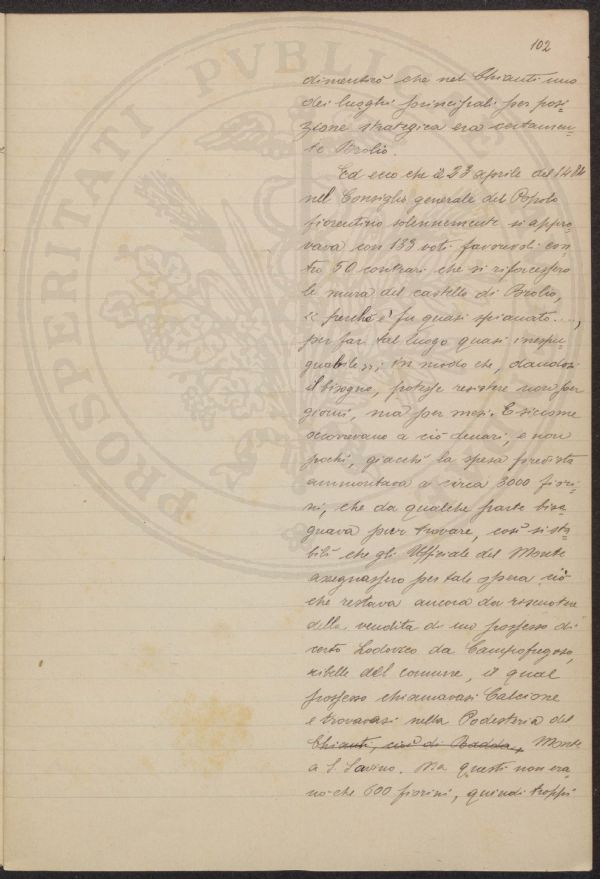 102
dimenticò che nel Chianti uno
dei luoghi principali per posi-
zione strategica era certamen-
te Brolio.
Ed ecco che il 23 aprile del 1484
nel Consiglio generale del Popolo
fiorentino solennemente si appro-
vava con 133 voti favorevoli con-
tro 50 contrari che si riforcessero
le mura del castello di Brolio,
« perché e' fu quasi spianato....,
per far tal luogo quasi inespu-
gnabile »; in modo che, dandosi
il bisogno, potesse resistere non per
giorni, ma per mesi. E siccome
occorrevano a ciò denari, e non
pochi, giacché la spesa predista
ammontava a circa 3000 fiori-
ni, che da qualche parte biso-
gnava pur trovare, così si sta-
bilì che gli Uffiziale del Monte
assegnassero per tale opera ciò
che restava ancora da riscuotere
della vendita di uno possesso di
certo Lodovico da Campofregoso,
ribelle del comune, il qual
possesso chiamavasi Calcione
e trovavasi nella Podesteria del
Chianti, cioè di Radda, Monte
a S. Savino. Ma questi non era-
no che 600 fiorini, quindi troppi
PROSPERITATI PVBLICAE